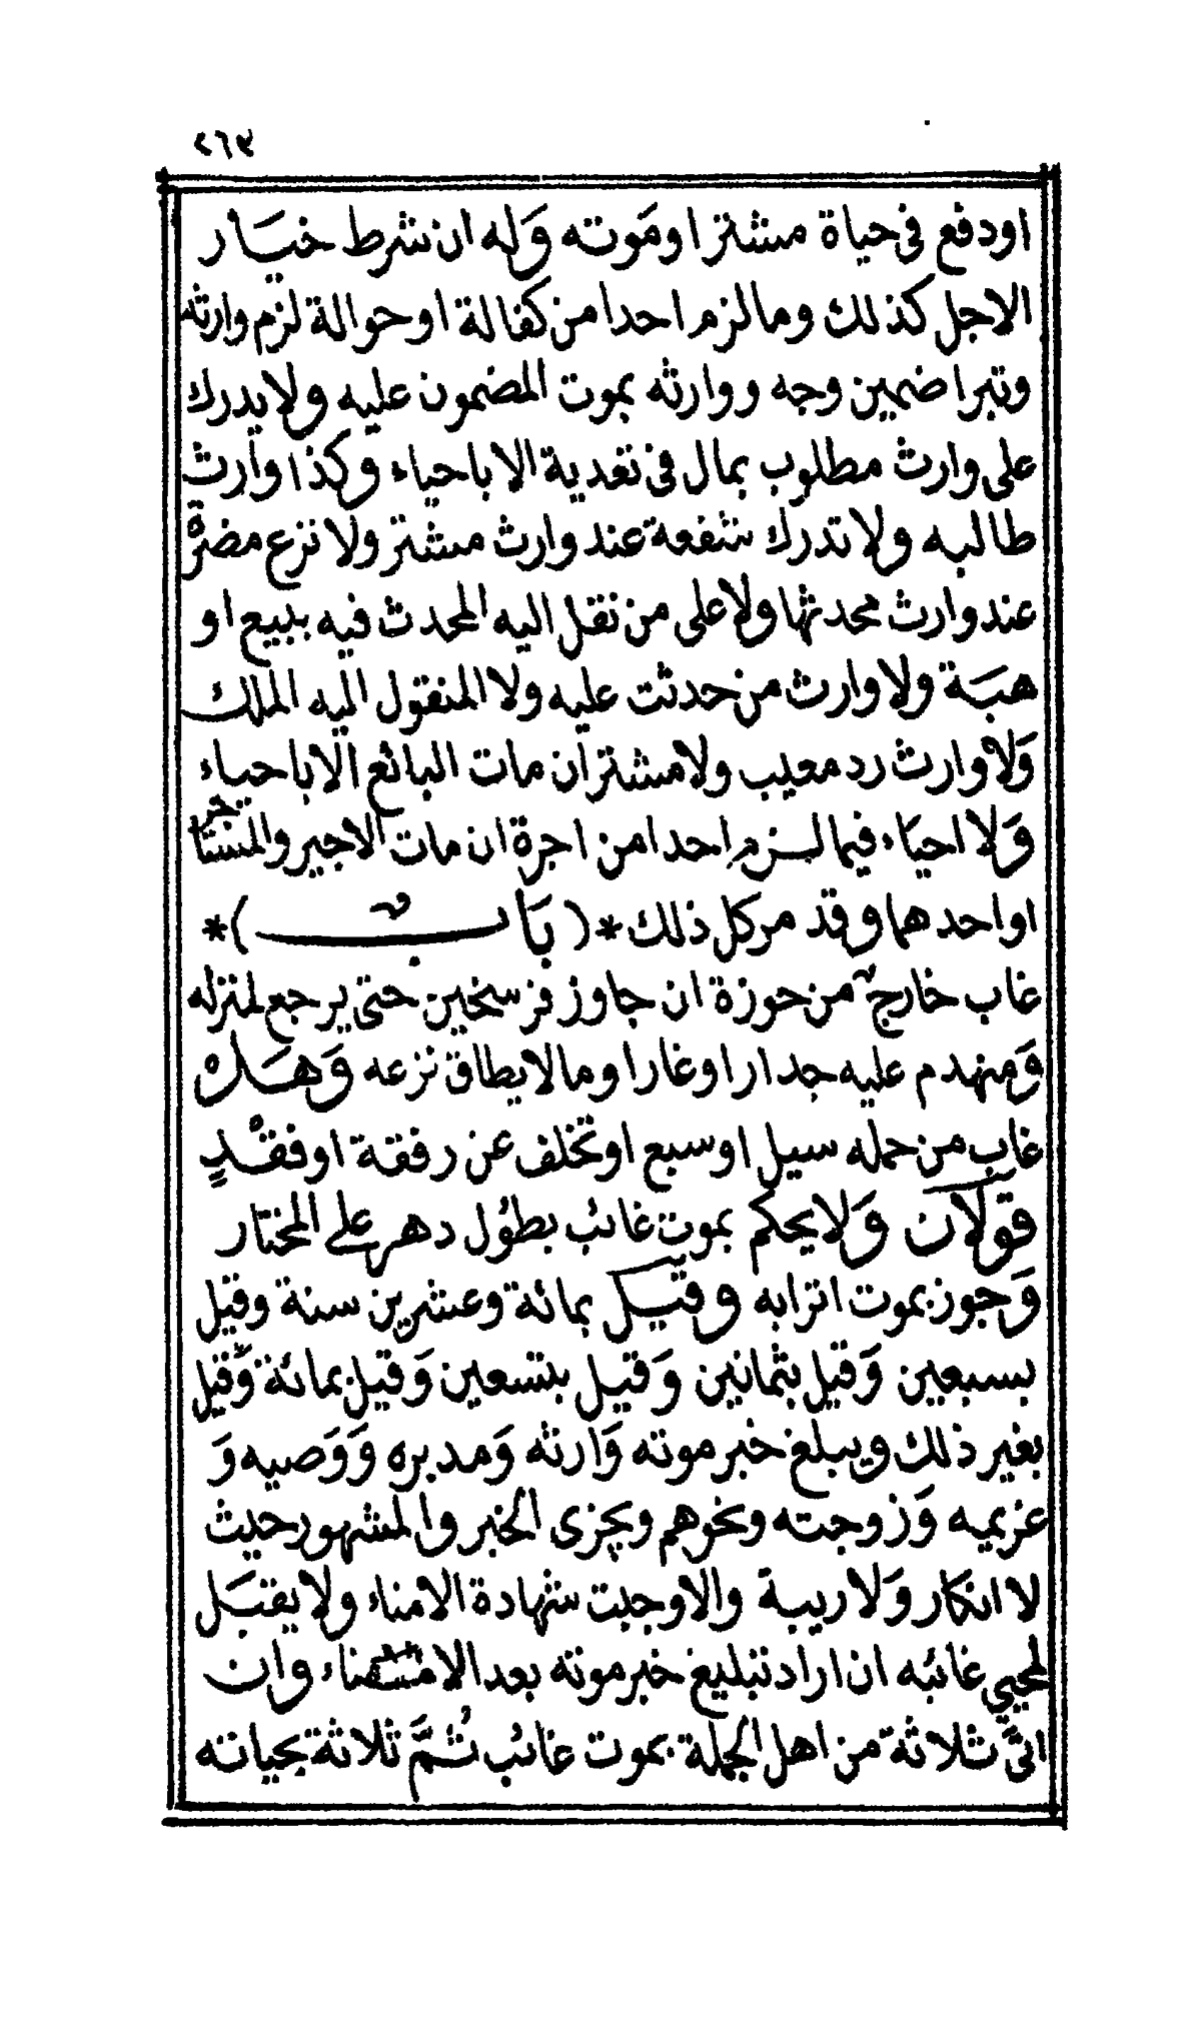 ٢٦٣
اودفع فى حياة مشتر اوموته وله ان شرط خيار
الاجل كذلك ومالزم احدا من كفالة او حوالة لزم وارثه
وتبرا ضمين وجه ووارثه بموت المضمون عليه ولا يدرك
على وارث مطلوب بمال فى تعدية الا باحياء وكذا وارث
طالبه ولا تدرك شفعة عند وارث مشتر ولا نزع مضرة
عند وارث محدثها ولا على من نقل اليه المحدث فيه ببيع او
هبة ولا وارث من حدثت عليه ولا المنقول اليه الملك
ولا وارث رد معيب ولا مشتر ان مات البائع الا باحياء
ولا احياء فيما لزم احدا من اجرة ان مات الاجير والمستأجر
او احدهما وقد مر كل ذلك *( بَاب )*
غاب خارج من حوزة ان جاوز فرسخين حتى يرجع لمنزله
ومنهدم عليه جدار او غار او مالا يطاق نزعه وَهَل
غاب من حمله سيل او سبع او تخلف عن رفقة او فقد
قولان ولا يحكم بموت غائب بطول دهر على المختار
وَجوز بموت اترابه وقيل بمائة وعشرين سنة وقيل
بسبعين وَقيل بثمانين وَقيل بتسعين وَقيل بمائة وَقيل
بغير ذلك ويبلغ خبر موته وَارثه وَمدبره وَوَصيه وَ
غريمه وَزوجته ونحوهم ويجزى الخبر والمشهور حيث
لا انكار وَلا ريبة والا وجبت شهادة الامناء ولا يقبَل
لمحيي غائبه ان اراد تبليغ خبر موته بعد الا منشقناء وان
اتى ثلاثة من اهل الجملة بموت غائب ثُمَّ ثلاثة بحياته